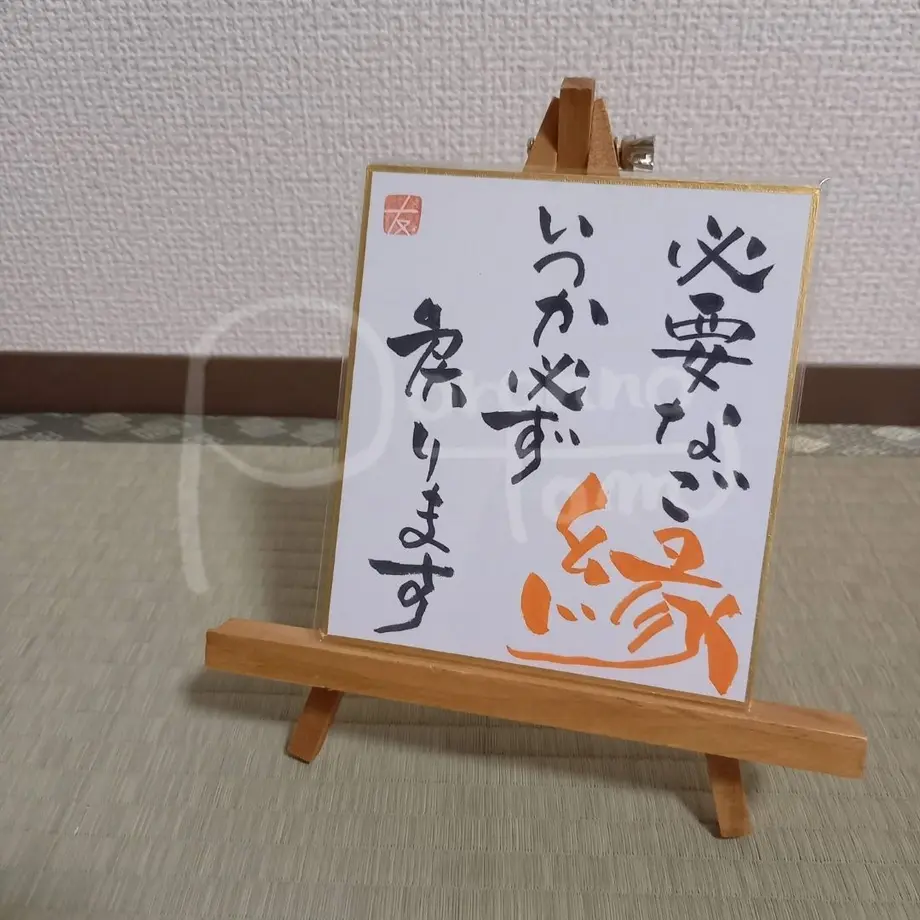 必要なご縁
いつか必ず
戻ります
友